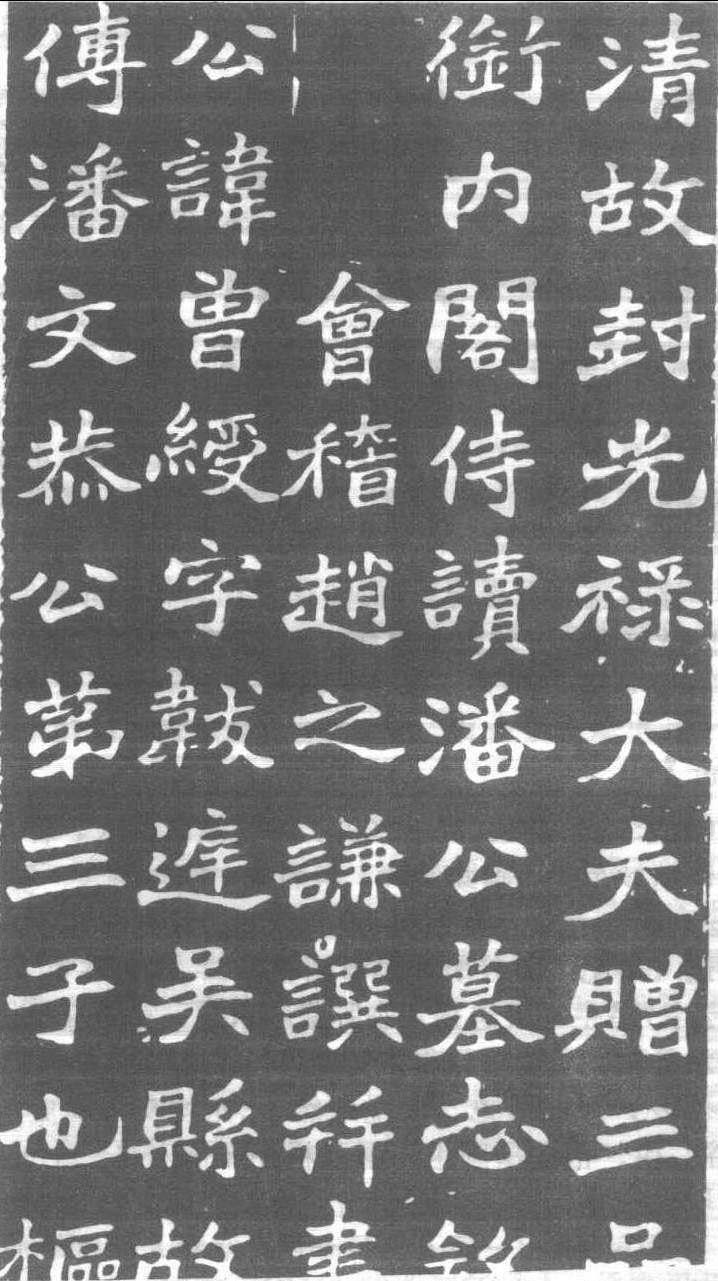 清故封光禄大夫贈三品
銜内閣侍讀潘公墓志銘
會稽趙之謙譔并書
公諱曾綬字韍遲吴縣故
傅潘文恭公第三子也樞